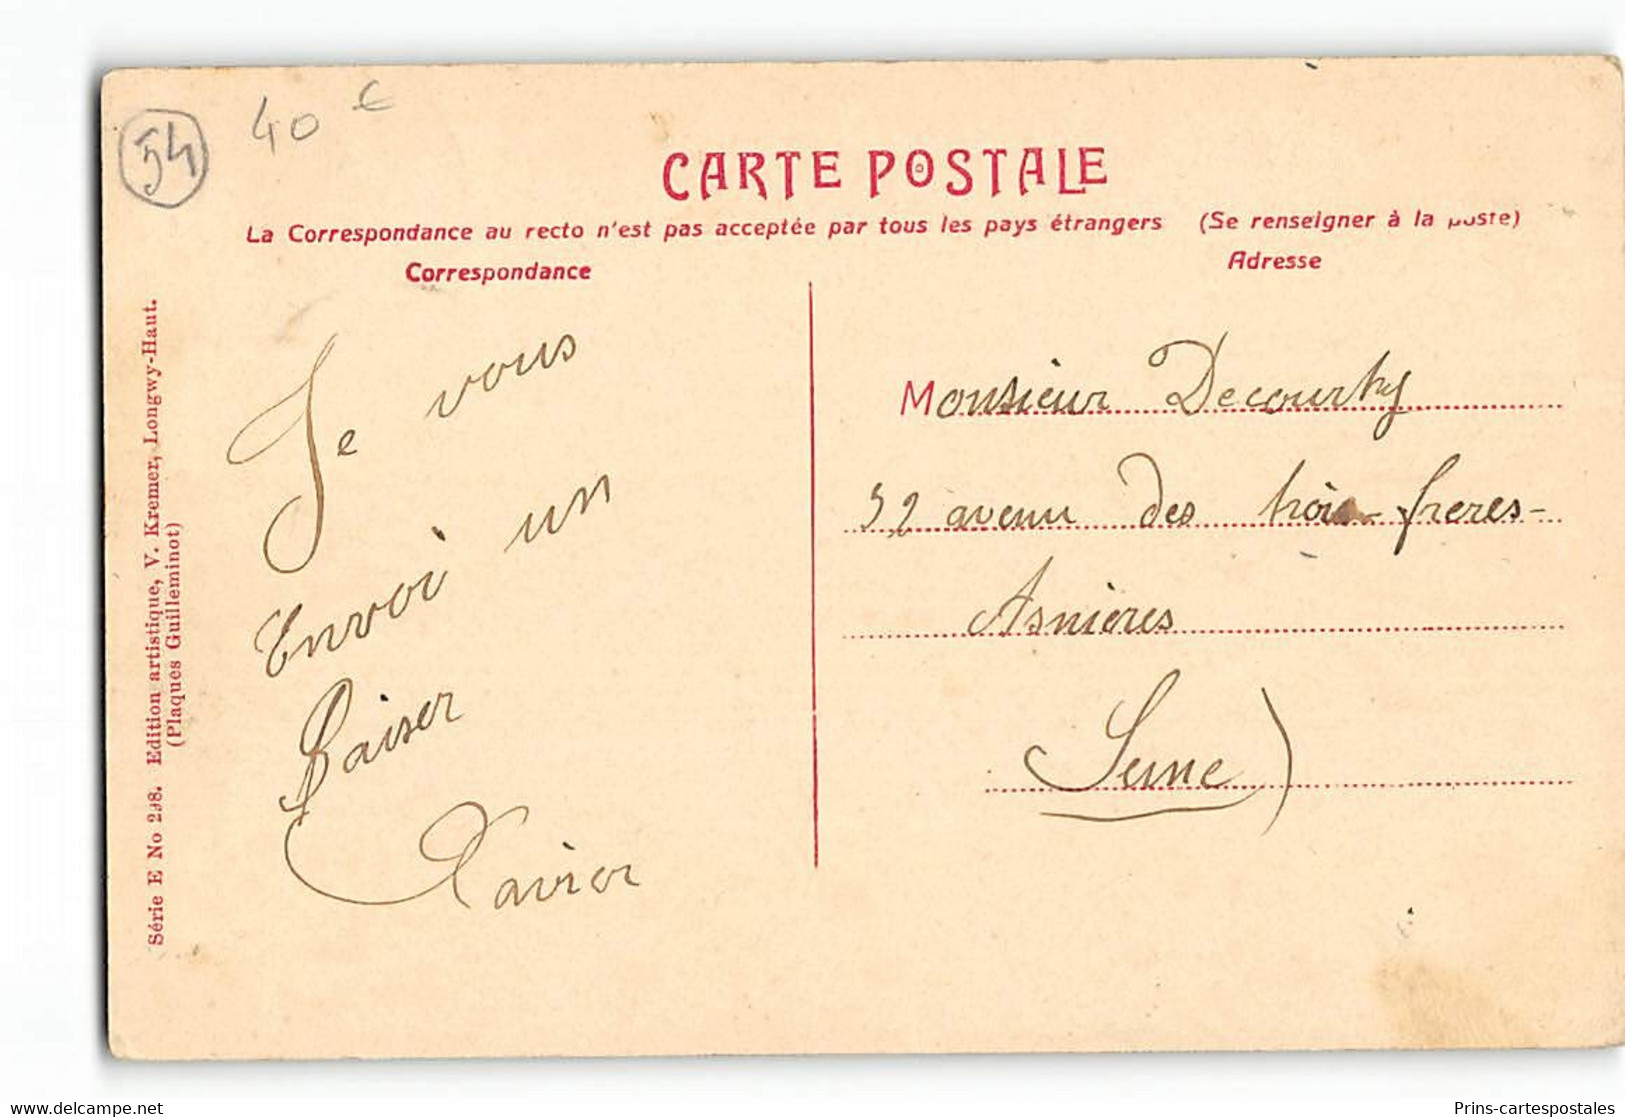 54
40 €
CARTE POSTALE
La Correspondance au recto n'est pas acceptée par tous les pays étrangers (Se renseigner à la poste)
Correspondance
Adresse
Série E No 298. Edition artistique, V. Kremer, Longwy-Haut.
(Plaques Guilleminot)
Je vous
Envoi un
Baiser
Xavier
Monsieur Decourty
52 avenu des trois-freres-
Asnières
Seine)
www.delcampe.net
Prins-cartespostales